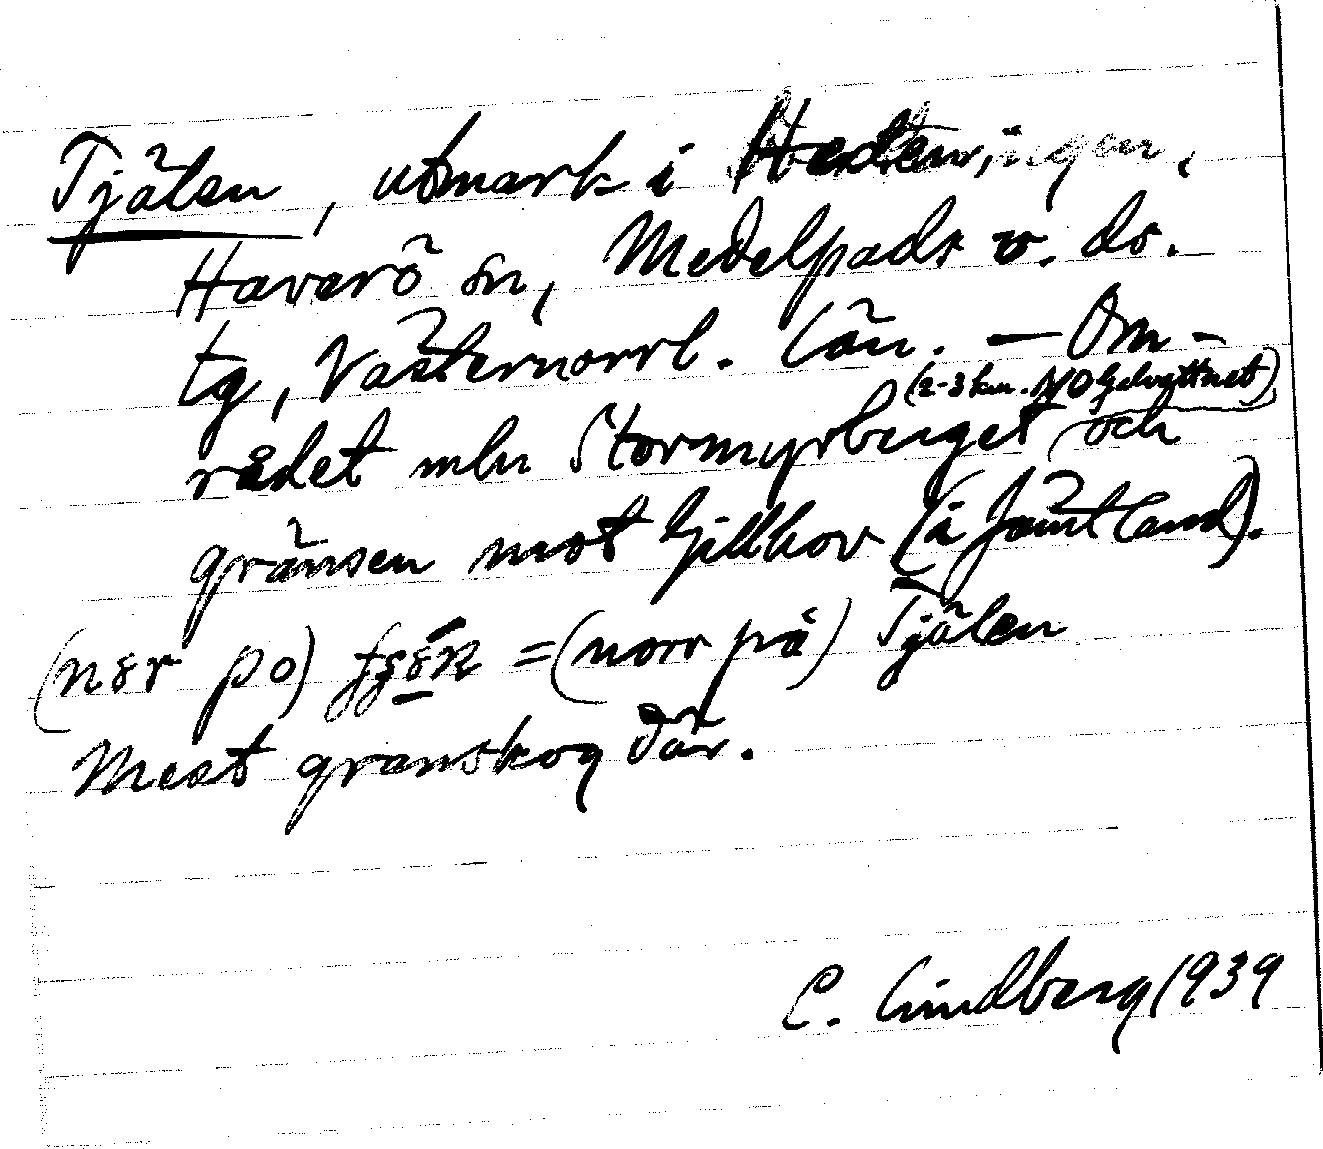 Tjälen, utmark i
Haverö sn, Medelpads v. ds.
tg, Västernorrl. län. — Om-
(2-3 km. NO Gelvattnet)
rådet mln Stormyrberget och
gränsen mot Gillhov (i Jämtland).
(nɛr po) = (norr på) Tjälen
Mest granskog där.
C. Lindberg 1939